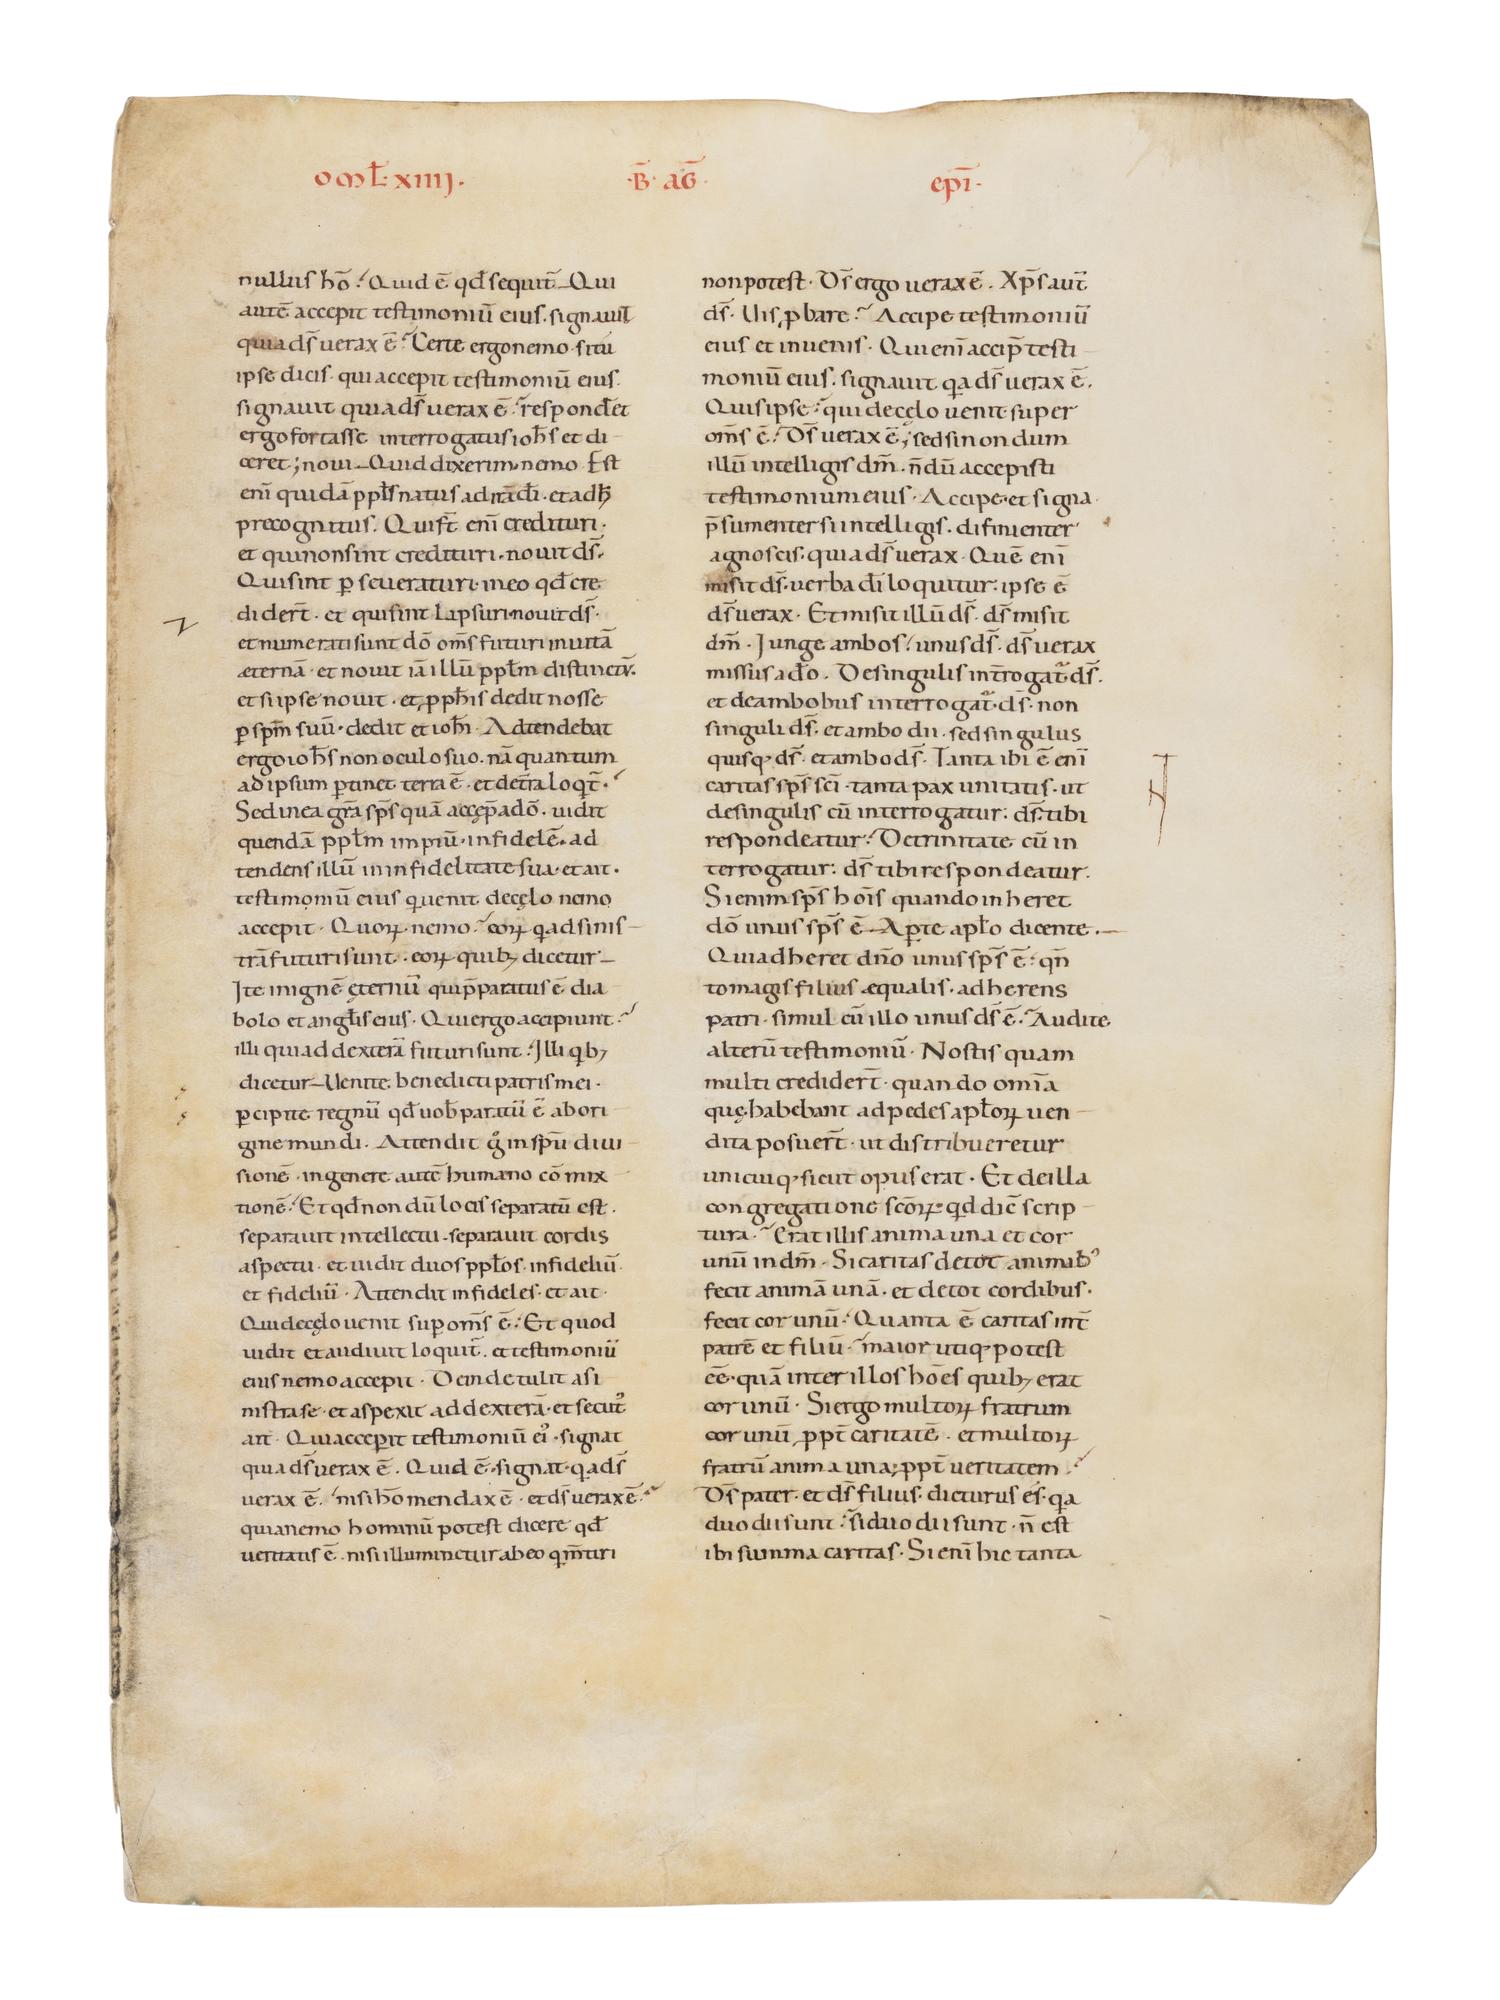 omł· xiiij·
·B̄· aḠ·
ep̄i·
nullus hō? Quid ē qđ sequit̄ Qui
autē accepit testimoniū eius· signauit
quia ds̄ uerax ē? Certe ergo nemo· si tu
ipse dicis· qui accepit testimoniū eius·
signauit quia ds̄ uerax ē? responđet
ergo fortasse interrogatus ioħs et di
ceret; noui Quid dixerim nemo Est
eni quidā ppłs natus ad irā dī· et ad h̄
precognitus· Qui st̄ enī credituri·
et qui non sint credituri· nouit ds̄·
Qui sint p̱seueraturi in eo qđ cre
didert̄· et qui sint lapsuri nouit ds̄·
et numerati sunt dō oms̄ futuri in uitā
æternā· et nouit iā illū ppłm distinctū·
et si ipse nouit· et ꝓpħis dedit nosse
ꝑ spm̄ suū· dedit et ioħi· Adtendebat
ergo ioħs non oculo suo· nā quantum
ad ipsum ꝑtinet terra ē· et de tr̄a loqt̄·
Sed in ea gr̄a sp̄s quā accep̄ a dō· uidit
quendā ppłm impiū· infidelē· ad
tendens illū in infidelitate sua· et ait·
testimoniū eius q uenit de cęlo nemo
accepit· Quoꝝ nemo? eoꝝ q ad sinis
trā futuri sunt· eoꝝ quibꝫ dicetur
Ite in ignē ęternū qui p̄paratus ē dia
bolo et angłis eius· Qui ergo accipiunt?
illi qui ad dexterā futuri sunt? Illi qbꝫ
dicetur Uenite benedicti patris mei·
ꝑcipite regnū qđ uob paratū ē ab ori
gine mundi· Attendit g in spū diui
sionē· in genere autē humano cōmix
tionē? Et qđ nondū locis separatū est·
separauit intellectu· separauit cordis
aspectu· et uidit duos ppłos· infideliū
et fideliū· Attendit infideles· et ait·
Qui de cęlo uenit sup oms̄ ē? Et quod
uidit et audiuit loquit̄· et testimoniū
eius nemo accepit· Deinde tulit a si
nistra se· et aspexit ad dexterā· et secut᾽
ait· Qui acceꝑit testimoniū ei᾽· signat
quia ds̄ uerax ē· Quid ē· signat· qa ds̄
uerax ē· nisi hō mendax ē· et ds̄ uerax ē?
quia nemo hominū potest dicere qđ
ueritatis ē· nisi illuminetur ab eo q m̄tiri
non potest· Ds̄ ergo uerax ē· Xps̄ aut̄
ds̄· Uis ꝓbare? Accipe testimoniū
eius et inuenis· Qui enī accip̄ testi
moniū eius· signauit qa ds̄ uerax ē·
Quis ipse? qui de cęlo uenit· super
oms̄ ē? Ds̄ uerax ē; sed si nondum
illū intelligis dm̄· n̄dū accepisti
testimonium eius· Accipe· et signa·
p̄sumenter si intelligis· difinienter
agnoscis· quia ds̄ uerax· Quē enī
misit ds̄· uerba dī loquitur· ipse ē
ds̄ uerax· Et misit illū ds̄· ds̄ misit
dm̄· Junge ambos? unus ds̄· ds̄ uerax
missus a đo· De singulis int̄rogat̄ ds̄·
et de ambobus interrogat̄· ds̄· non
singuli ds̄· et ambo dii· sed singulus
quisqꝫ ds̄· et ambo ds̄· Tanta ibi ē enī
caritas sps̄ scī· tanta pax unitatis· ut
de singulis cū interrogatur: ds̄ tibi
respondeatur? De trinitate cū in
terrogatur: ds̄ tibi respondeatur·
Si enim sps̄ hoīs quando inheret
dō unus sps̄ ē· Aꝑte apło dicente·
Qui adheret dn̄o unus sps̄ ē: qn̄
to magis filius æqualis· adherens
patri· simul cū illo unus ds̄ ē? Audite
alterū testimoniū· Nostis quam
multi credidert̄· quando omīa
quę habebant ad pedes apłoꝝ uen
dita posuert̄· ut distribueretur
unicuiqꝫ sicut opus erat· Et de illa
congregatione scōꝝ qd dic̄ scrip
tura? Erat illis anima una et cor
unū in dm̄· Si caritas de tot animab᾽
fecit animā unā· et de tot cordibus·
fecit cor unū? Quanta ē caritas int̄
patrē et filiū? maior utiqꝫ potest
eē· quā inter illos hoēs quibꝫ erat
cor unū· Si ergo multoꝝ fratrum
cor unū ꝓpt̄ caritatē· et multoꝝ
fratrū anima una; ꝓpt̄ ueritatem?
Ds̄ pater· et ds̄ filius· dicturus es̄· qa
duo dii sunt? si duo dii sunt· n̄ est
ibi summa caritas· Si enī hic tanta